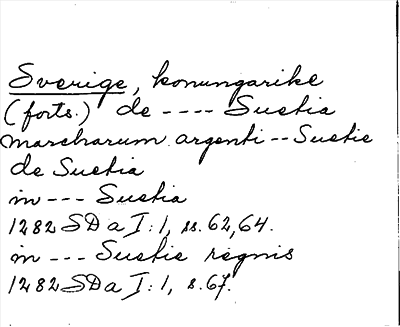 Sverige, konungarike
(forts.) de ---- Suetia
marcharum argenti -- Suetie
de Suetia
in --- Suetia
1282 SD a I: 1, ss. 62, 64.
in --- Suetie regnis
1282 SD a I: 1, s. 67.